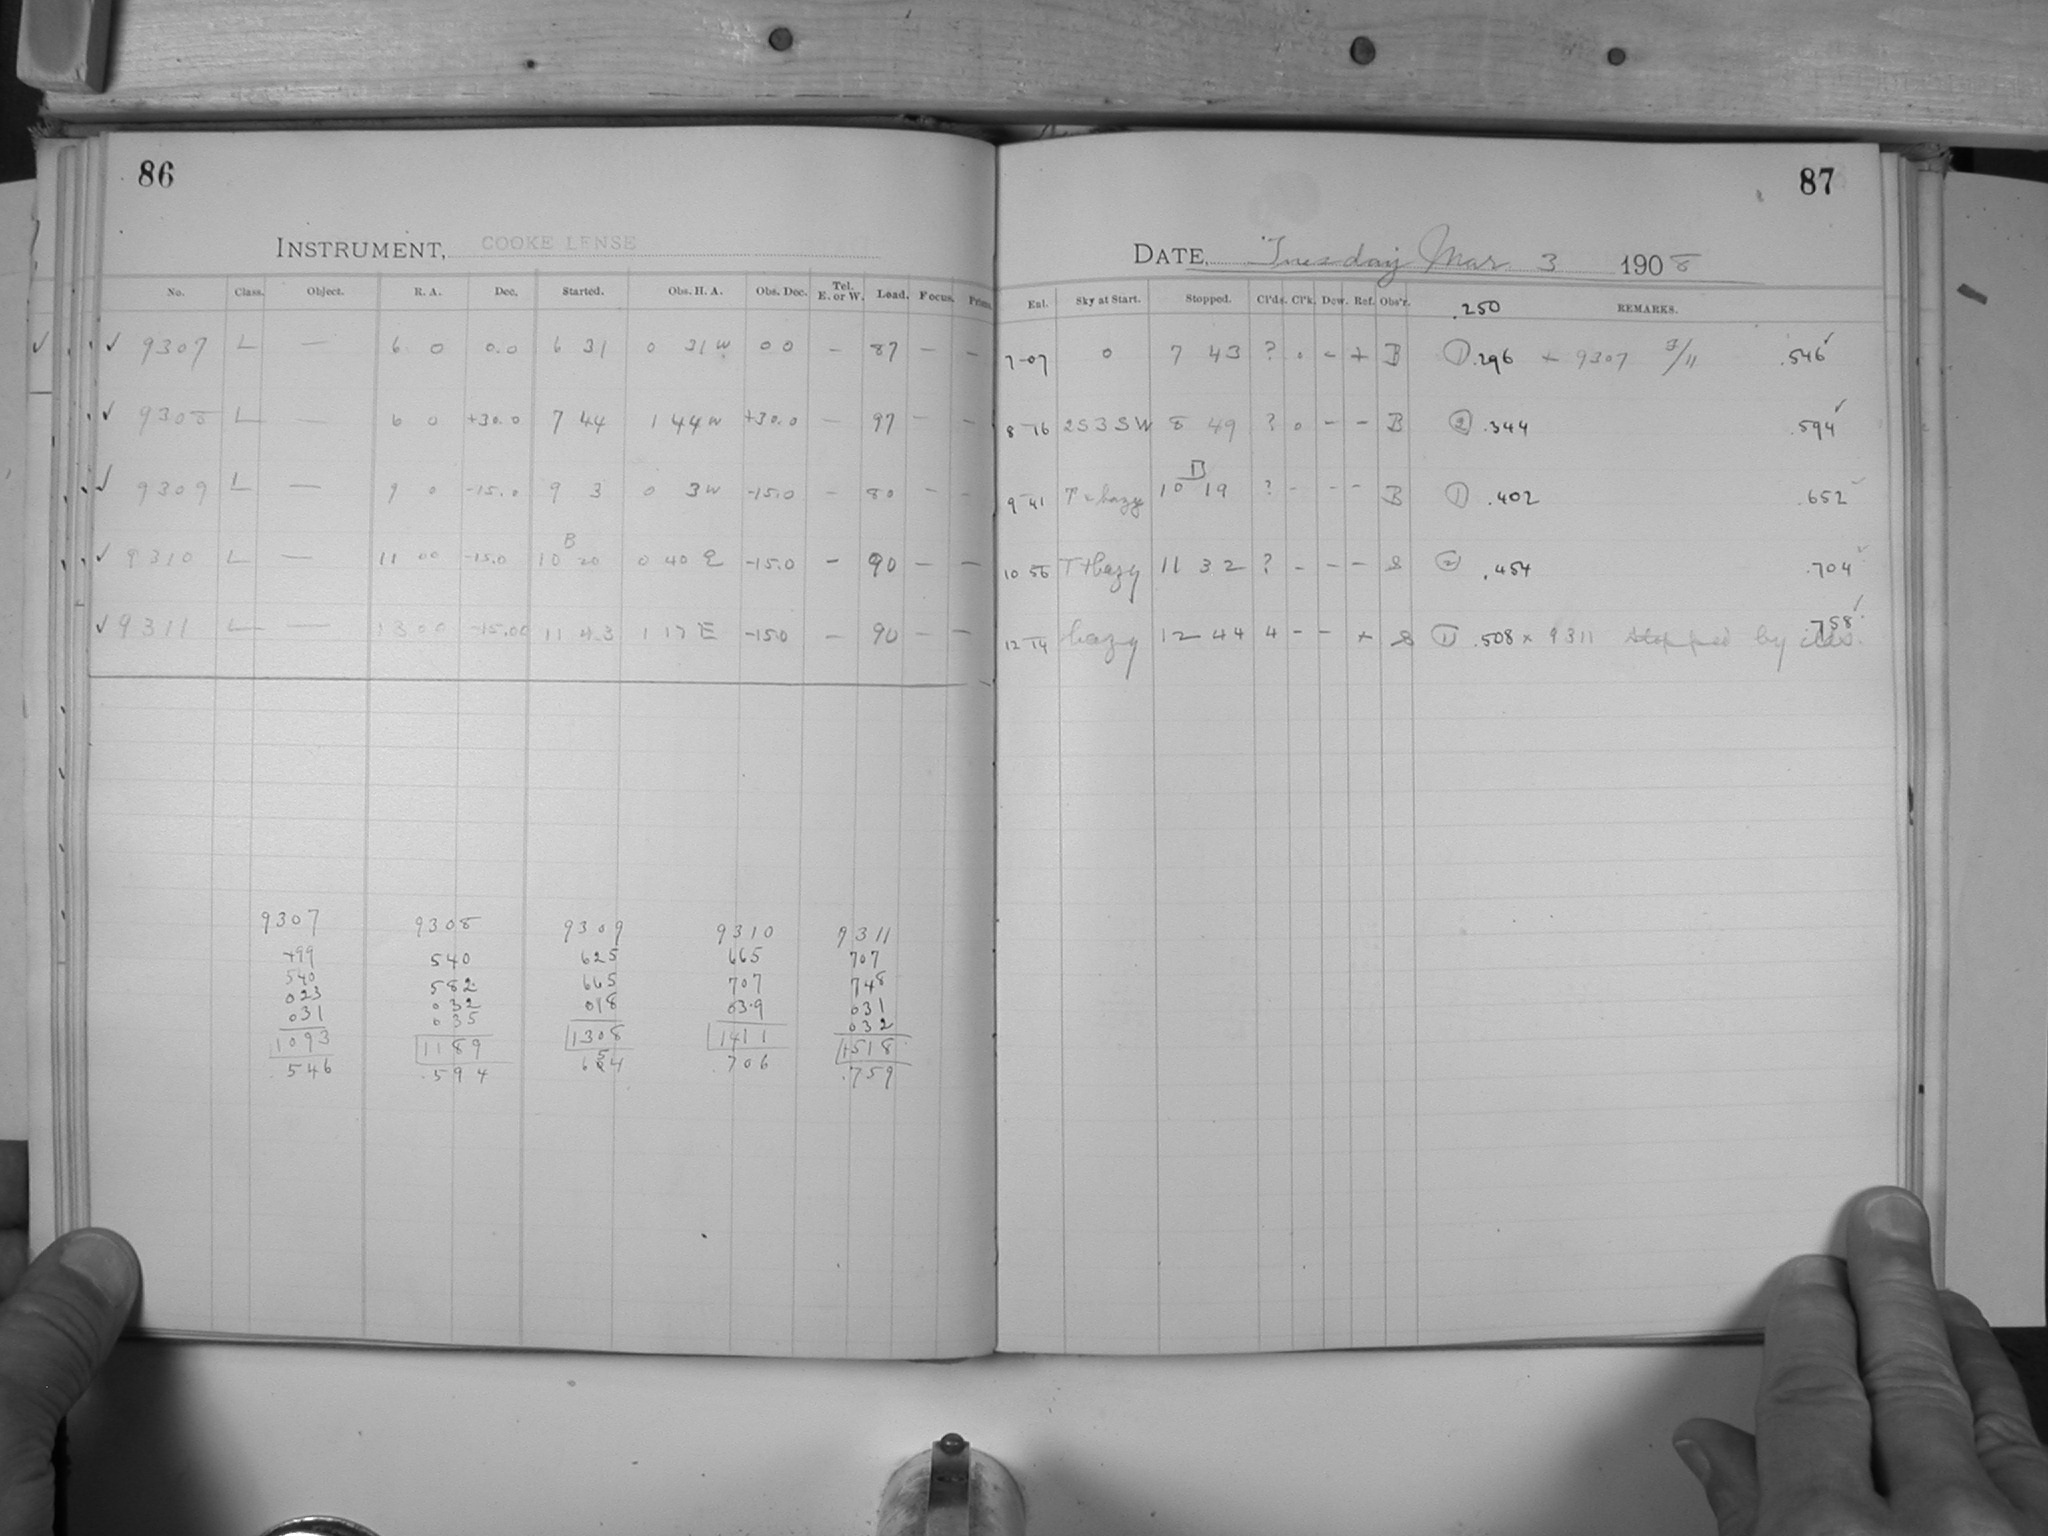 86
INSTRUMENT, COOKE LENSE
No. Class. Object. R. A. Dec. Started. Obs. H. A. Obs. Dec. Tel. E. or W. Load. Focus. Prism.
✓ 9307 L — 6 0 0.0 6 31 0 31 W 0 0 – 87 – –
✓ 9308 L — 6 0 +30.0 7 44 1 44 W +30.0 – 97 – –
✓ 9309 L — 9 0 -15.0 9 3 0 3 W -15.0 – 80 – –
✓ 9310 L — 11 00 -15.0 10 B 20 0 40 E -15.0 – 90 – –
✓ 9311 L — 13 00 -15.00 11 43 1 17 E -15.0 – 90 – –
9307 9308 9309 9310 9311
499 540 625 665 707
540 582 665 707 748
023 032 018 039 031
031 035 032
1093 1189 1308 1411 1518
.546 .594 654 .706 .759
87
DATE, Tuesday Mar 3 1908
Eal. Sky at Start. Stopped. Cl'ds. Cl'k. Dew. Ref. Obs'r. .250 REMARKS.
7-07 0 7 43 ? 0 – + B ① .296 + 9307 3/11 .546 ✓
8-16 2S3SW 8 49 ? 0 – – B ② .344 .594 ✓
9-41 T + hazy 10 B 19 ? – – – B ① .402 .652 ✓
10 56 T+hazy 11 32 ? – – – S ② .454 .704 ✓
12-14 hazy 12 44 4 – – + S ① .508 × 9311 stopped by clds. .758 ✓